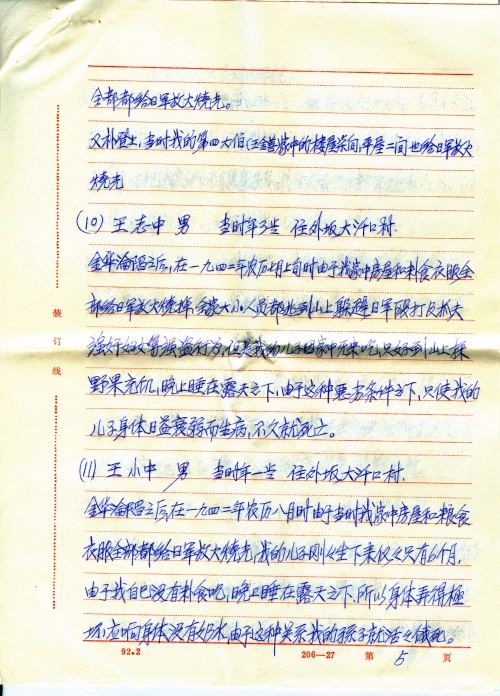 全部都给日军放火烧光。
又补登上,当时我的第四大伯(王金善)家中的楼屋柒间,平屋二间也给日军放火
烧光
(10) 王志中 男 当时年3岁 住外坂大沂口村.
金华沦陷之后,在一九四二年农历七月上旬时由于我家中房屋和粮食衣服全
部都给日军放火烧掉,全家大小人员都逃到山上躲避日军
强奸妇女等强盗行为,但是我的儿子因家中无米吃,只好到山上採
野果充饥,晚上睡在露天之下,由于这种恶劣条件之下,只使我的
儿子身体日益衰弱而生病,不久就死亡。
(11) 王小中 男 当时年一岁 住外坂大沂口村.
金华沦陷之后,在一九四二年农历八月时由于当时我家中房屋和粮食
衣服全部都给日军放火烧光,我的儿子刚刚生下来仅仅只有6个月,
由于我自己没有粮食吃,晚上睡在露天之下,所以身体弄得極
坏,应响身体没有奶水,由于这种关系我的孩子就活活饿死。
装订线
92.2 206—27 第 5 页